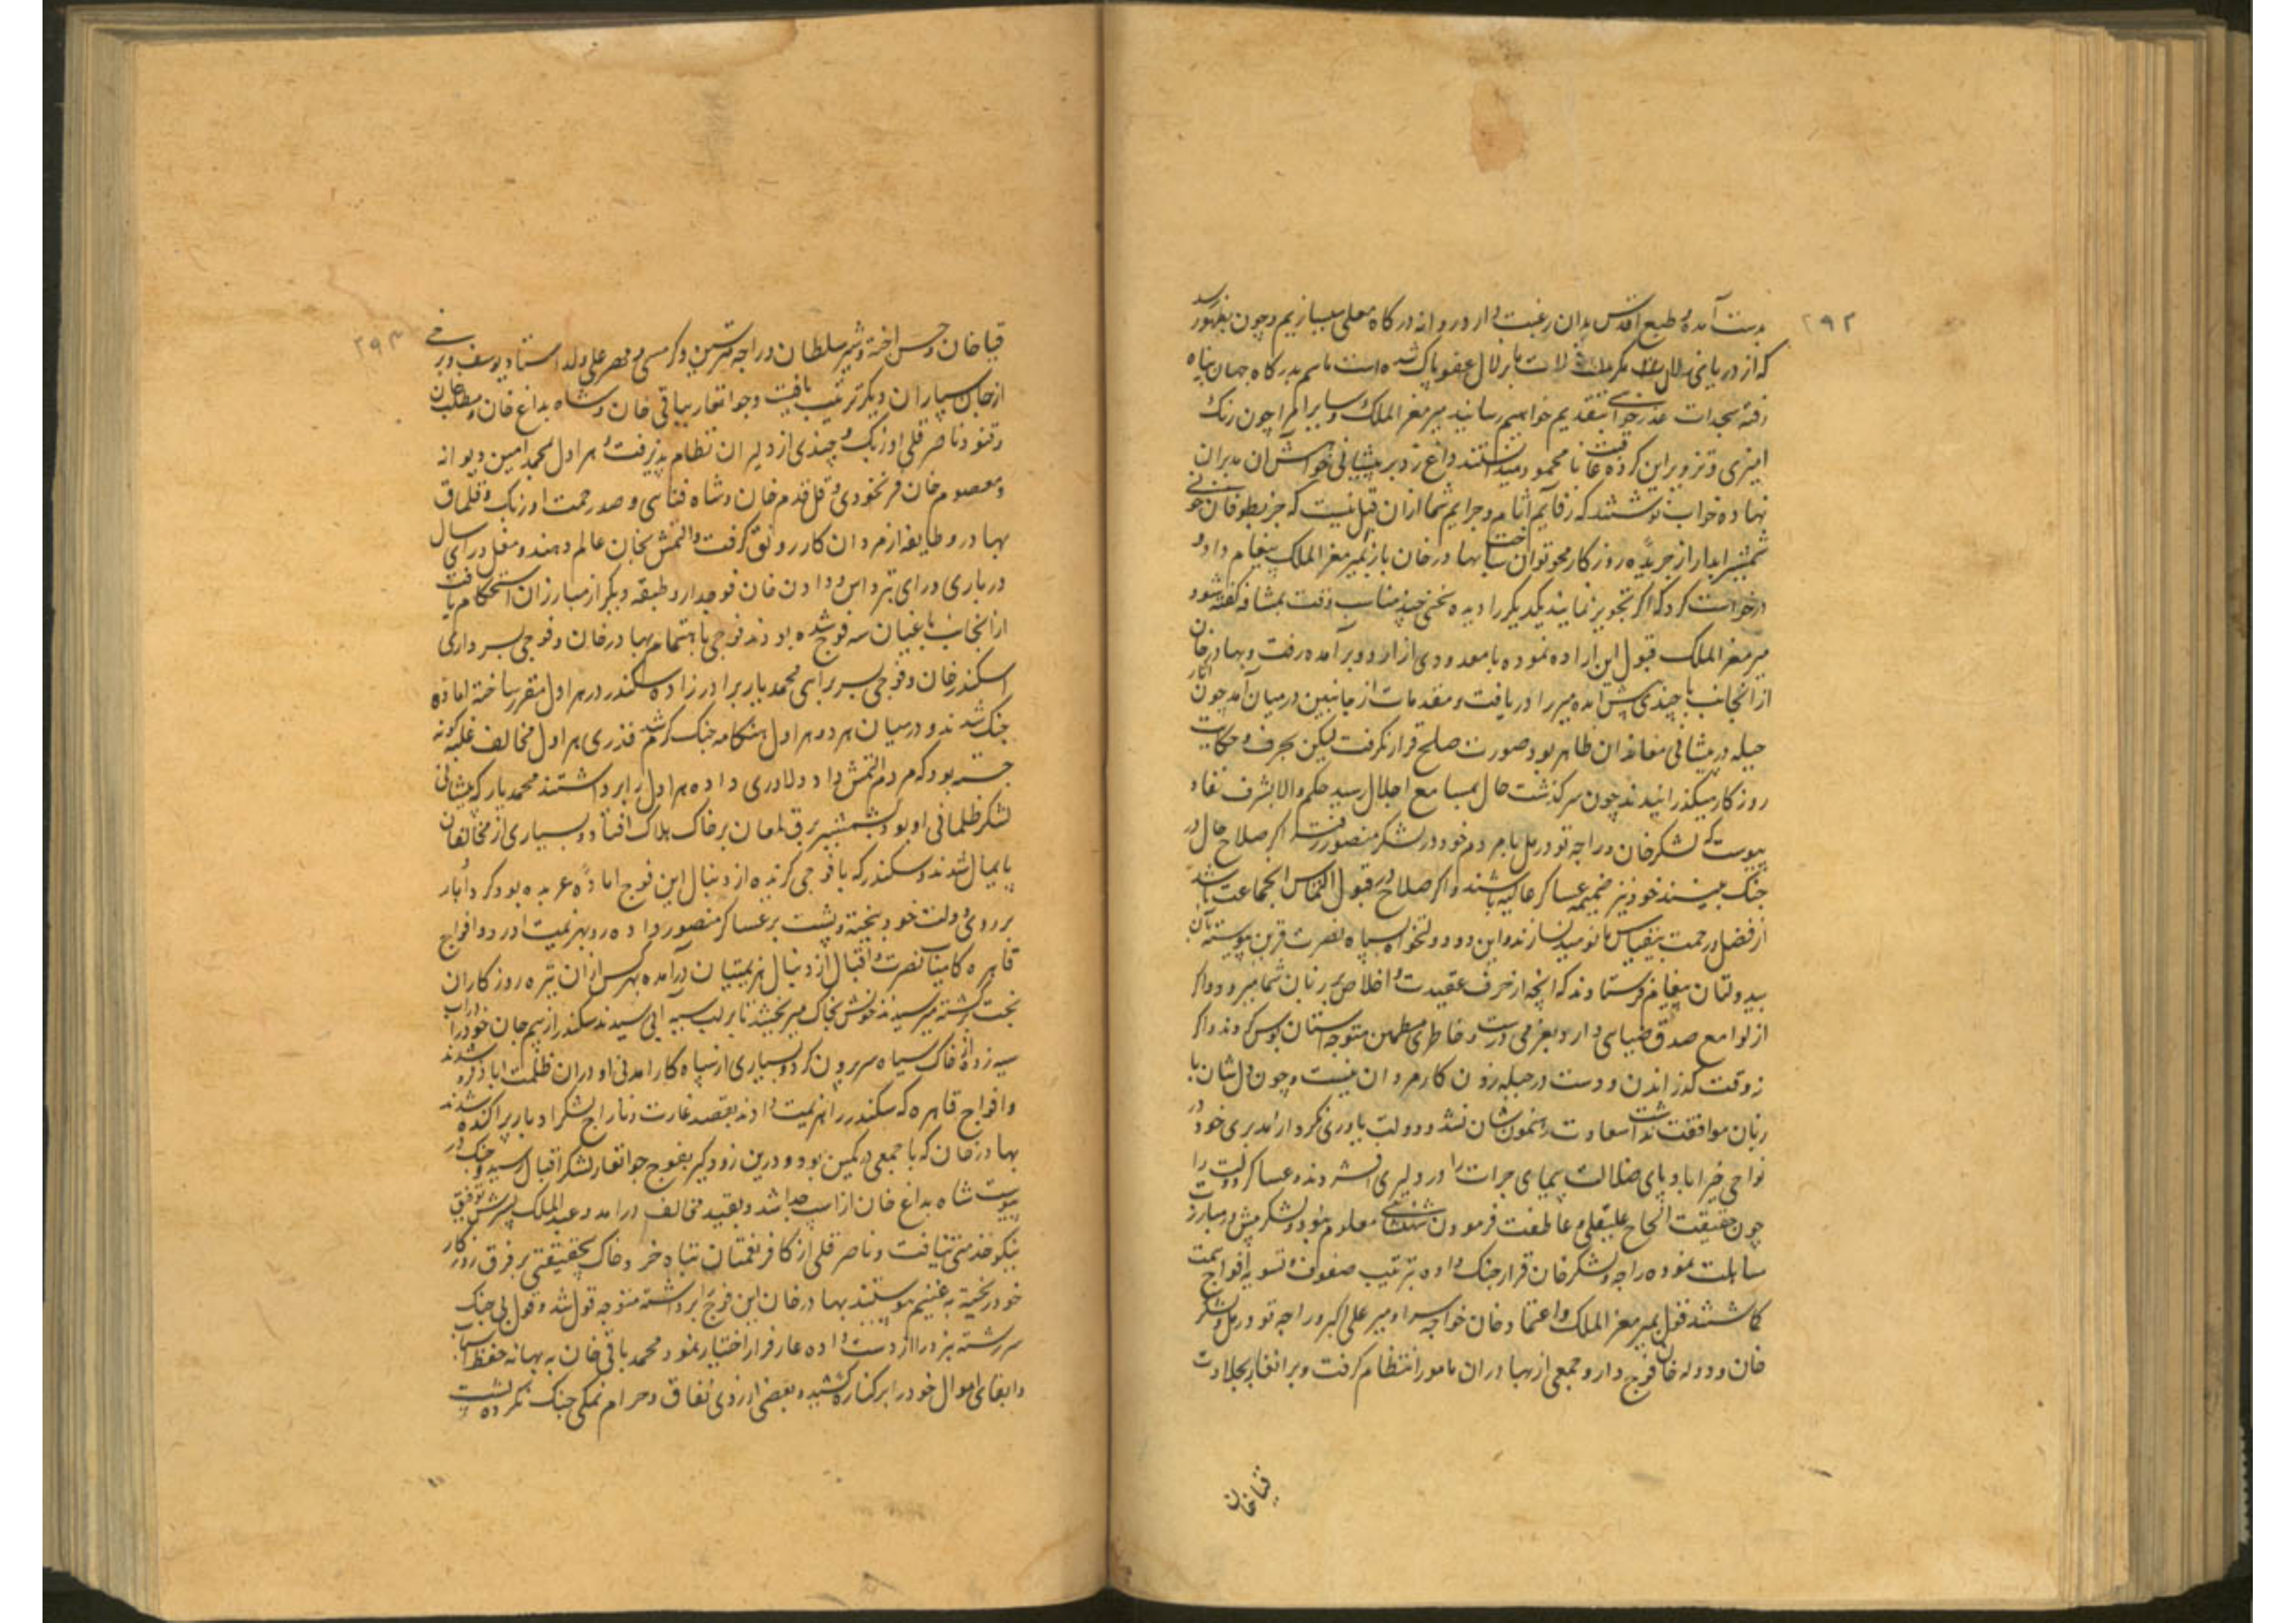 ۲۹۲
بدست آمده و طبع اقدس بدان رغبت دارد روانه درگاه معلی میسازیم و چون بظهور رسد
که از دریای زلال مکرمت زلات ما بزلال عفو پاک شده است ما هم بدرکاه جهان پناه
رفته سجدات عذرخواهی بتقدیم خواهیم رسانید میر معز الملک و سایر امرا چون رنک
امیزی و تزویر این کروه عاقبت نا محمود میدانستند داغ رد بر پیشانی خواهش آن مدبران
نهاده جواب نوشتند که رقایم آثام و جرایم شما ازان قبیل نیست که جز بطوفان خونی
شمشیر ابدار از جریده روزکار محو توان ساخت بهادر خان باز بمیر معز الملک پیغام داد و
درخواست کرد که اکر تجویز نمایند یکدیکر را دیده سخنی چند مناسب وقت بمشافه کفته شود
میر معز الملک قبول این اراده نموده با معدودی از اردو برآمده رفت و بهادر خان
از انجانب با چندی پیش امده میر را دریافت و مقدمات از جانبین درمیان آمد چون آثار
حیله در پیشانی معاندان ظاهر بود صورت صلح قرار نکرفت لیکن بحرف و حکایت
روزکار میکذرانیدند چون سرکذشت حال بمسامع اجلال رسید حکم والا بشرف نفاذ
پیوست که لشکر خان و راجه تودرمل با مردم خود در لشکر منصور رفته اکر صلاح حال در
جنک بینند خود نیز ضمیمه عساکر عالیه باشند و اکر صلاح در قبول التماس انجماعت باشد
از فضل و رحمت بیقیاس ما نومید نسازند و این دو دولتخواه بسپاه نصرت قرین پیوسته بآن
بیدولتان پیغام فرستادند که انچه از حرف عقیدت و اخلاص بر زبان شما میرود اکر
از لوامع صدق ضیای دارد بعزمی درست و خاطری مطمئن متوجه استان بوس کردند و اکر
نه وقت که زاندن و دست در حیله زدن کار مردان نیست و چون دل شان با
زبان موافقت نداشت سعادت رهنمون شان نشد و دولت یاوری نکرد از مدبری خود در
نواحی خیراباد پای ضلالت پیمای جرات را در دلیری افشردند و عساکر دولت را
چون حقیقت الحاح علیقلی و عاطفت فرمودن شهنشاهی معلوم نبود و لشکر میش در مبارزت
مساهلت نموده راجه و لشکر خان قرار جنک داده بترتیب صفوف و تسویه افواج همت
کماشتند قول بمیر معز الملک و اعتماد خان خواجه سرا و میر علی اکبر و راجه تودرمل و لشکر
خان و دوله خان فوج دار و جمعی از بهادران نامور انتظام کرفت و برانغار بجلادت
قیا خان
۲۹۳
قیا خان و حسن اخته و شیر سلطان و راجه متر سین و کرمسی و مصر علی ولد استاد یوسف و برخی
از جان سپاران دیکر ترتیب یافت و جوانغار بباقی خان و شاه بداغ خان و مطلب خان
و قنو و ناصر قلی اوزبک و چندی از دلیران نظام پذیرفت و هراول بمحمد امین دیوانه
و معصوم خان فرنخودی و قتل قدم خان و شاه فنائی و صد رحمت اوزبک و قلماق
بهادر و طایفه از مردان کار رونق کرفت و التمش بخان عالم و هندو مغل و رای سال
درباری و رای پتر داس و وادن خان فوجدار و طبقه دیکر از مبارزان استحکام یافت
از انجانب باغیان سه فوج شده بودند فوجی باهتمام بهادر خان و فوجی بسرداری
اسکندر خان و فوجی بسربراهی محمد یار برادرزاده سکندر در هراول مقرر ساخته اماده
جنک شدند و درمیان هر دو هراول هنکامه جنک کرم شد قدری هراول مخالف غلبه کونه
جسته بود که مردم التمش داد دلاوری داده هراول را برداشتند محمد یار که پیشانی
لشکر ظلمانی او بود بشمشیر برق لمعان برخاک هلاک افتاد و بسیاری از مخالفان
پایمال شدند و سکندر که با فوجی کزیده از دنبال این فوج اماده عربده بود کرد ادبار
بر روی دولت خود بیخته و پشت بر عساکر منصور داده رو بهزیمت اورد و افواج
قاهره کامیاب نصرت و اقبال از دنبال هزیمتیان درآمده بهر کس ازان تیره روزکاران
بخت برکشته میرسیدند خونش بخاک میریختند تا بر لب سیه آبی رسیدند سکندر از بیم جان خود را در آب
سیه زده از خاک سیاه سر برون کرد و بسیاری از سپاه کار امدنی او دران ظلمت اباد فرو شدند
و افواج قاهره که سکندر را هزیمت دادند بقصد غارت و تاراج لشکر ادبار پراکنده شدند
بهادر خان که با جمعی در کمین بود و درین زود کیر بفوج جوانغار لشکر اقبال رسید و جنک در
پیوست شاه بداغ خان از اسپ جدا شد و بقید مخالف درامد و عبد الملک پسرش توفیق
نیکو خدمتی نیافت و ناصر قلی از کافر نعمتان تباه خرد خاک بی حقیقتی بر فرق روزکار
خود ریخته به غنیم پیوستند بهادر خان این فوج را برداشته متوجه قول شد و قول بی جنک
سررشته نبرد را از دست داده عار فرار اختیار نمود محمد باقی خان به بهانه حفظ اسباب
و ابقای اموال خود را بر کناره کشیده و بعضی از روی نفاق و حرام نمکی جنک نکرده پشت